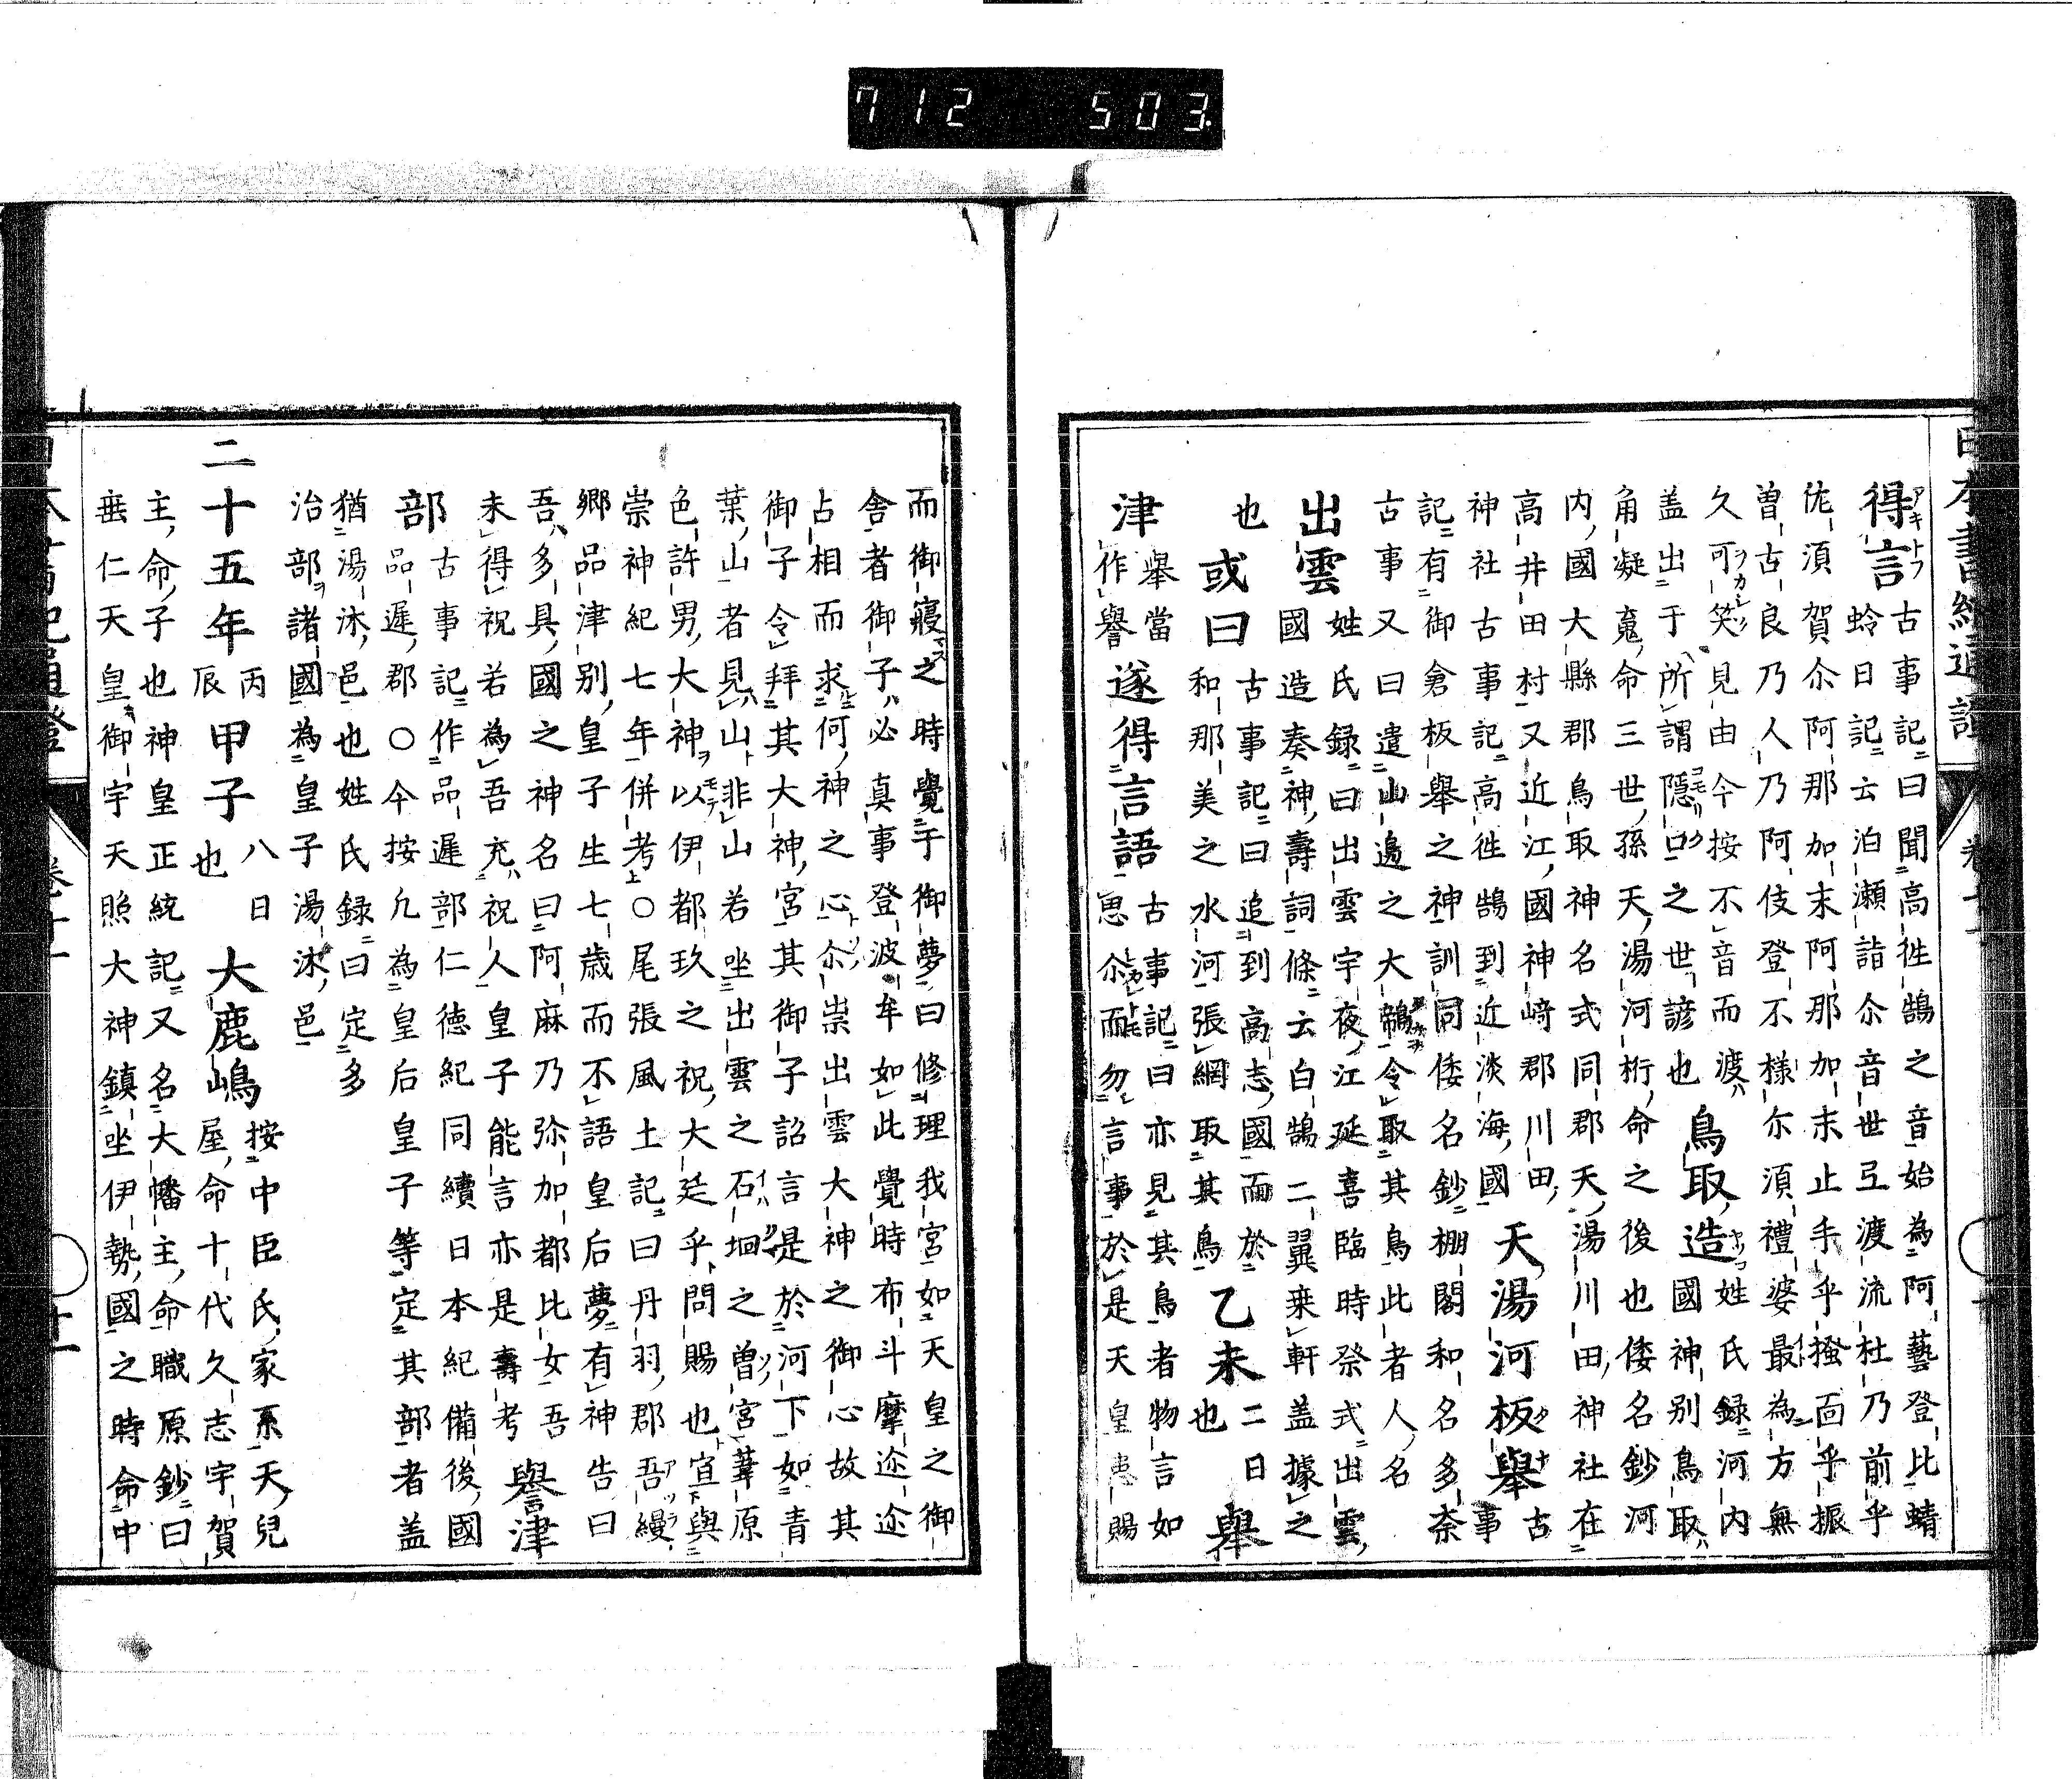 712 503
得言古事記曰聞高往鵠之音始為阿藝登比蜻
蛉日記云泊瀬詣尒音世弖渡流杜乃前乎
侘須賀尒阿那加末阿那加末止手乎掻面乎振
曽古良乃人乃阿伎登不様尓須禮婆最為方無
久可笑見由今按不音而渡鳥取造姓氏録河内
盖出于所謂隱口之世諺也國神別鳥取
角凝䰟命三世孫天湯河桁命之後也倭名鈔河
内國大縣郡鳥取神名式同郡天湯川田神社在
高井田村又近江國神﨑郡川田天湯河板舉古
神社古事記高往鵠到近淡海國事
記有御倉板舉之神訓同倭名鈔棚閣和名多奈
古事又曰遣山邊之大鶙令取其鳥此者人名
出雲姓氏録曰出雲宇夜江延喜臨時祭式出雲
國造奏神壽詞條云白鵠二翼乗軒盖據之
也或曰古事記曰追到高志國而於乙未二日舉
和那美之水河張網取其鳥也
津舉當遂得言語古事記曰亦見其鳥者物言如
作譽思尒而勿言事於是天皇患賜
而御寢之時覺于御夢曰修理我宮如天皇之御
舎者御子必真事登波牟如此覺時布斗摩迩迩
占相而求何神之心尒崇出雲大神之御心故其
御子令拜其大神宮其御子詔言是於河下如青
葉山者見山非山若坐出雲之石𡌛之曽宮葦原
色許男大神以伊都玖之祝大廷乎問賜也宣與
崇神紀七年併考○尾張風土記曰丹羽郡吾縵
郷品津別皇子生七歳而不語皇后夢有神告曰
吾多具國之神名曰阿麻乃弥加都比女吾
未得祝若為吾充祝人皇子能言亦是壽考譽津
部古事記作品遲部仁德紀同續日本紀備後國
品遲郡○今按凡為皇后皇子等定其部者盖
猶湯沐邑也姓氏録曰定多
治部諸國為皇子湯沐邑
二十五年丙辰甲子八日也大鹿嶋按中臣氏家系天兒
屋命十代久志宇賀
主命子也神皇正統記又名大幡主命職原鈔曰
垂仁天皇御宇天照大神鎮坐伊勢國之時命中